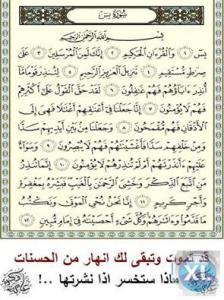 سُورَةُ يسٓ
بِسْمِ ٱللَّهِ ٱلرَّحْمَٰنِ ٱلرَّحِيمِ
يسٓ ١ وَٱلْقُرْءَانِ ٱلْحَكِيمِ ٢ إِنَّكَ لَمِنَ ٱلْمُرْسَلِينَ ٣ عَلَىٰ
صِرَٰطٍ مُّسْتَقِيمٍ ٤ تَنزِيلَ ٱلْعَزِيزِ ٱلرَّحِيمِ ٥ لِتُنذِرَ قَوْمًا مَّآ
أُنذِرَ ءَابَآؤُهُمْ فَهُمْ غَٰفِلُونَ ٦ لَقَدْ حَقَّ ٱلْقَوْلُ عَلَىٰٓ أَكْثَرِهِمْ
فَهُمْ لَا يُؤْمِنُونَ ٧ إِنَّا جَعَلْنَا فِىٓ أَعْنَٰقِهِمْ أَغْلَٰلًا فَهِىَ إِلَى
ٱلْأَذْقَانِ فَهُم مُّقْمَحُونَ ٨ وَجَعَلْنَا مِنۢ بَيْنِ أَيْدِيهِمْ سَدًّا
وَمِنْ خَلْفِهِمْ سَدًّا فَأَغْشَيْنَٰهُمْ فَهُمْ لَا يُبْصِرُونَ ٩ وَسَوَآءٌ
عَلَيْهِمْ ءَأَنذَرْتَهُمْ أَمْ لَمْ تُنذِرْهُمْ لَا يُؤْمِنُونَ ١٠ إِنَّمَا تُنذِرُ
مَنِ ٱتَّبَعَ ٱلذِّكْرَ وَخَشِىَ ٱلرَّحْمَٰنَ بِٱلْغَيْبِ فَبَشِّرْهُ بِمَغْفِرَةٍ
وَأَجْرٍ كَرِيمٍ ١١ إِنَّا نَحْنُ نُحْىِ ٱلْمَوْتَىٰ وَنَكْتُبُ
مَا قَدَّمُوا۟ وَءَاثَٰرَهُمْ وَكُلَّ شَىْءٍ أَحْصَيْنَٰهُ فِىٓ إِمَامٍ مُّبِينٍ ١٢
قد تموت وتبقى لك انهار من الحسنات
ماذا ستخسر اذا نشرتها ..!